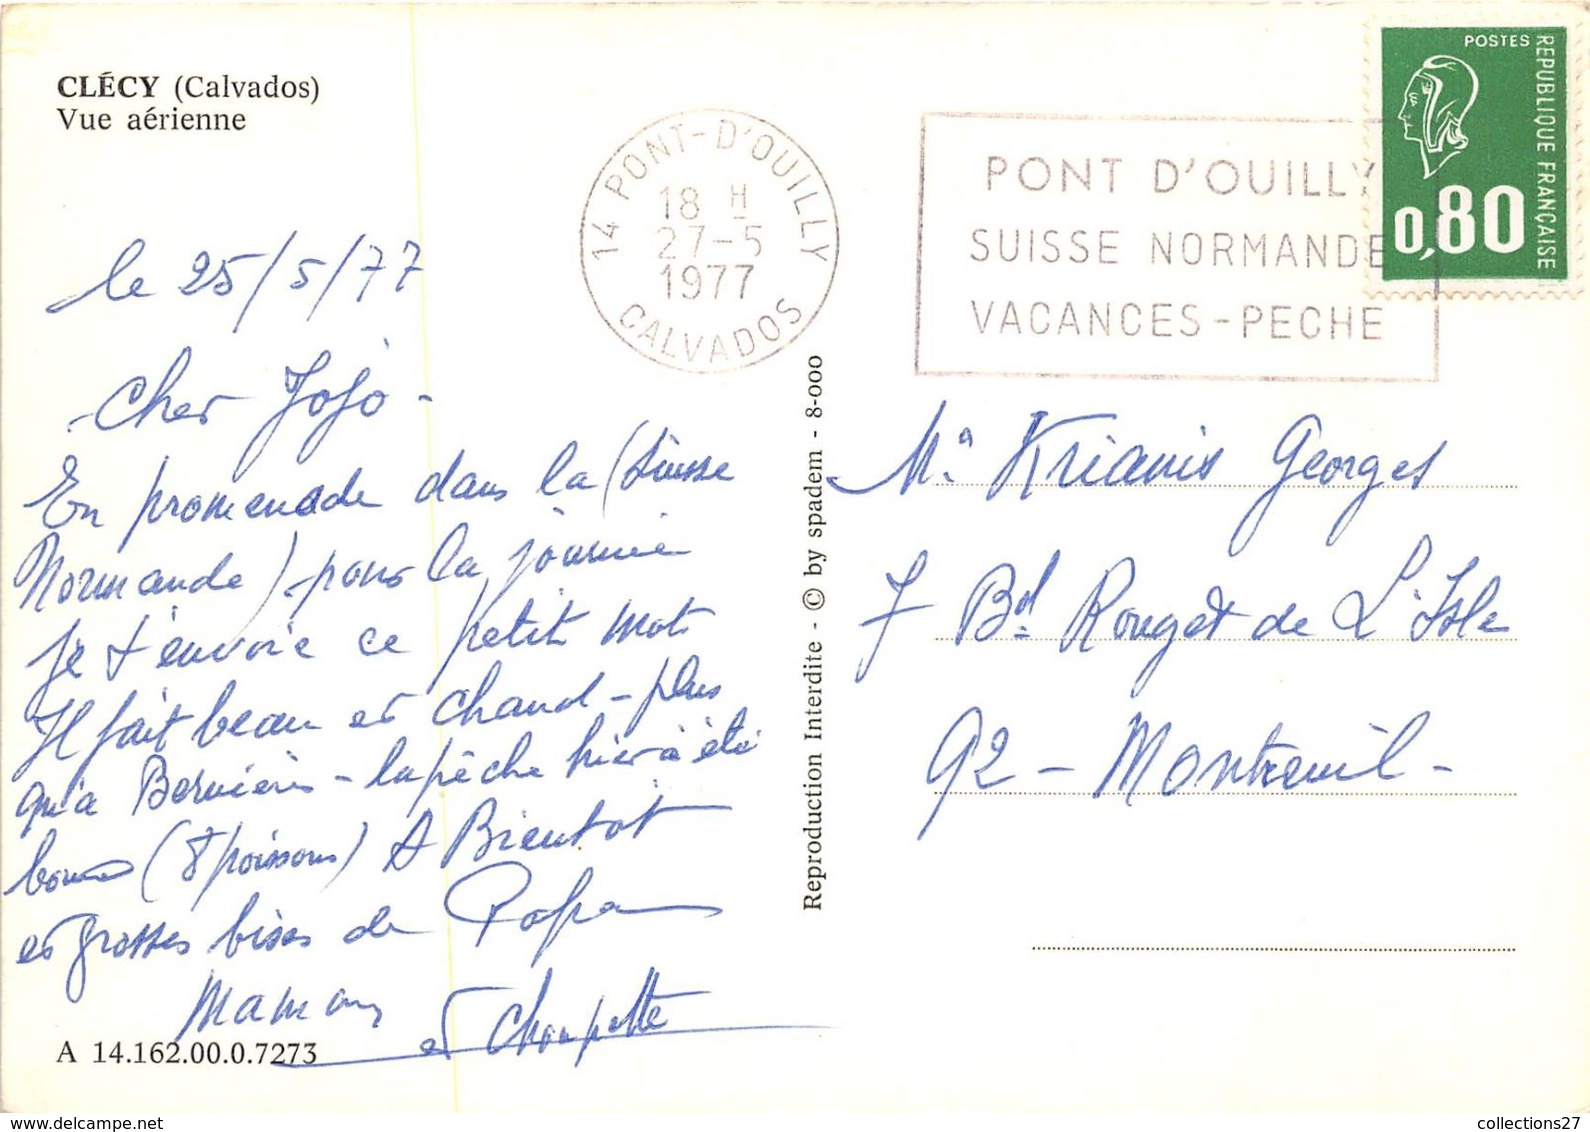 CLÉCY (Calvados)
Vue aérienne
14 PONT-D'OUILLY
18 H
27-5
1977
CALVADOS
PONT D'OUILLY
SUISSE NORMANDE
VACANCES-PECHE
POSTES
REPUBLIQUE FRANÇAISE
0,80
le 25/5/77
Cher Jojo -
En promenade dans la (Suisse
Normande) pour la journée
je t'envoie ce petit mot
Il fait beau et chaud - plus
qu'a Bernières - la pêche hier à été
bonne (8 poissons) A Bientot
et grosses bises de Papa
Maman
et Choupette
A 14.162.00.0.7273
Reproduction Interdite - © by spadem - 8-000
Mr Krianis Georges
7 Bd Rouget de L'Isle
92 - Montreuil -
collections27